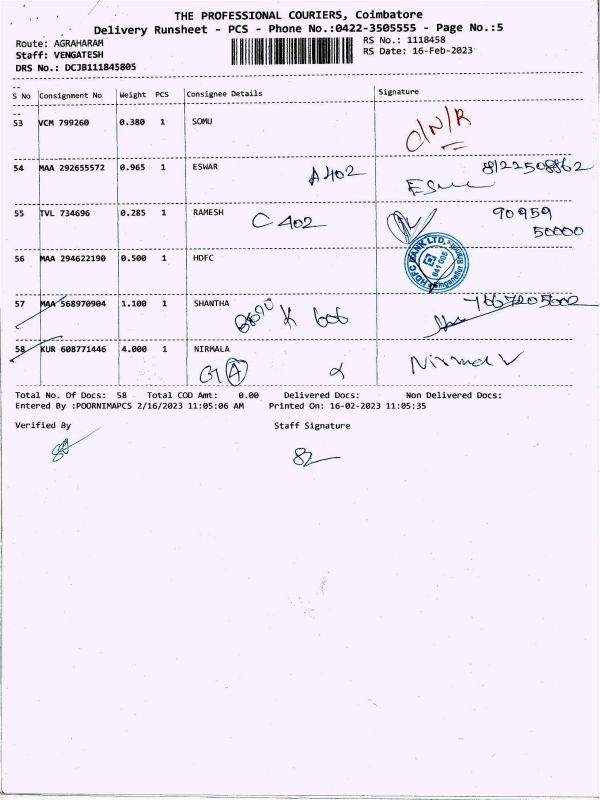 THE PROFESSIONAL COURIERS, Coimbatore
Delivery Runsheet - PCS - Phone No.:0422-3505555 - Page No.:5
Route: AGRAHARAM
Staff: VENGATESH
DRS No.: DCJB111845805
RS No.: 1118458
RS Date: 16-Feb-2023
S No Consignment No Weight PCS Consignee Details Signature
53 VCM 799260 0.380 1 SOMU
O/N/R
54 MAA 292655572 0.965 1 ESWAR
A402 8122508862
55 TVL 734696 0.285 1 RAMESH
C 402 90959
50000
56 MAA 294622190 0.500 1 HDFC
HDFC BANK LTD. 641 005
57 MAA 568970904 1.100 1 SHANTHA
K 606
58 KUR 608771446 4.000 1 NIRMALA
Total No. Of Docs: 58 Total COD Amt: 0.00 Delivered Docs: Non Delivered Docs:
Entered By :POORNIMAPCS 2/16/2023 11:05:06 AM Printed On: 16-02-2023 11:05:35
Verified By Staff Signature